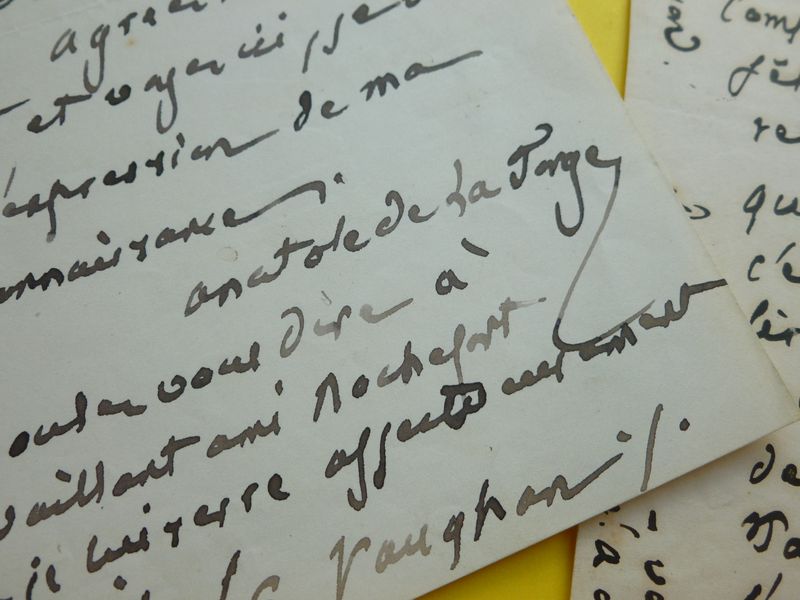 agréer
et voyez ici, je
expression de ma
onnaissance.
anatole de La Forge
oulez vous dire à
vaillant ami Rochefort
je lui serre affectueusement
Vaughan ./.
comp
re
qu
c'e
de